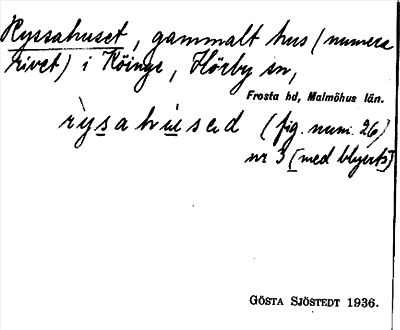 Ryssahuset, gammalt hus (numera
rivet) i Köinge, Hörby sn,
Frosta hd, Malmöhus län.
rỳsahu̇sed (fig. num. 26)
nr 3 [med blyerts]
GÖSTA SJÖSTEDT 1936.